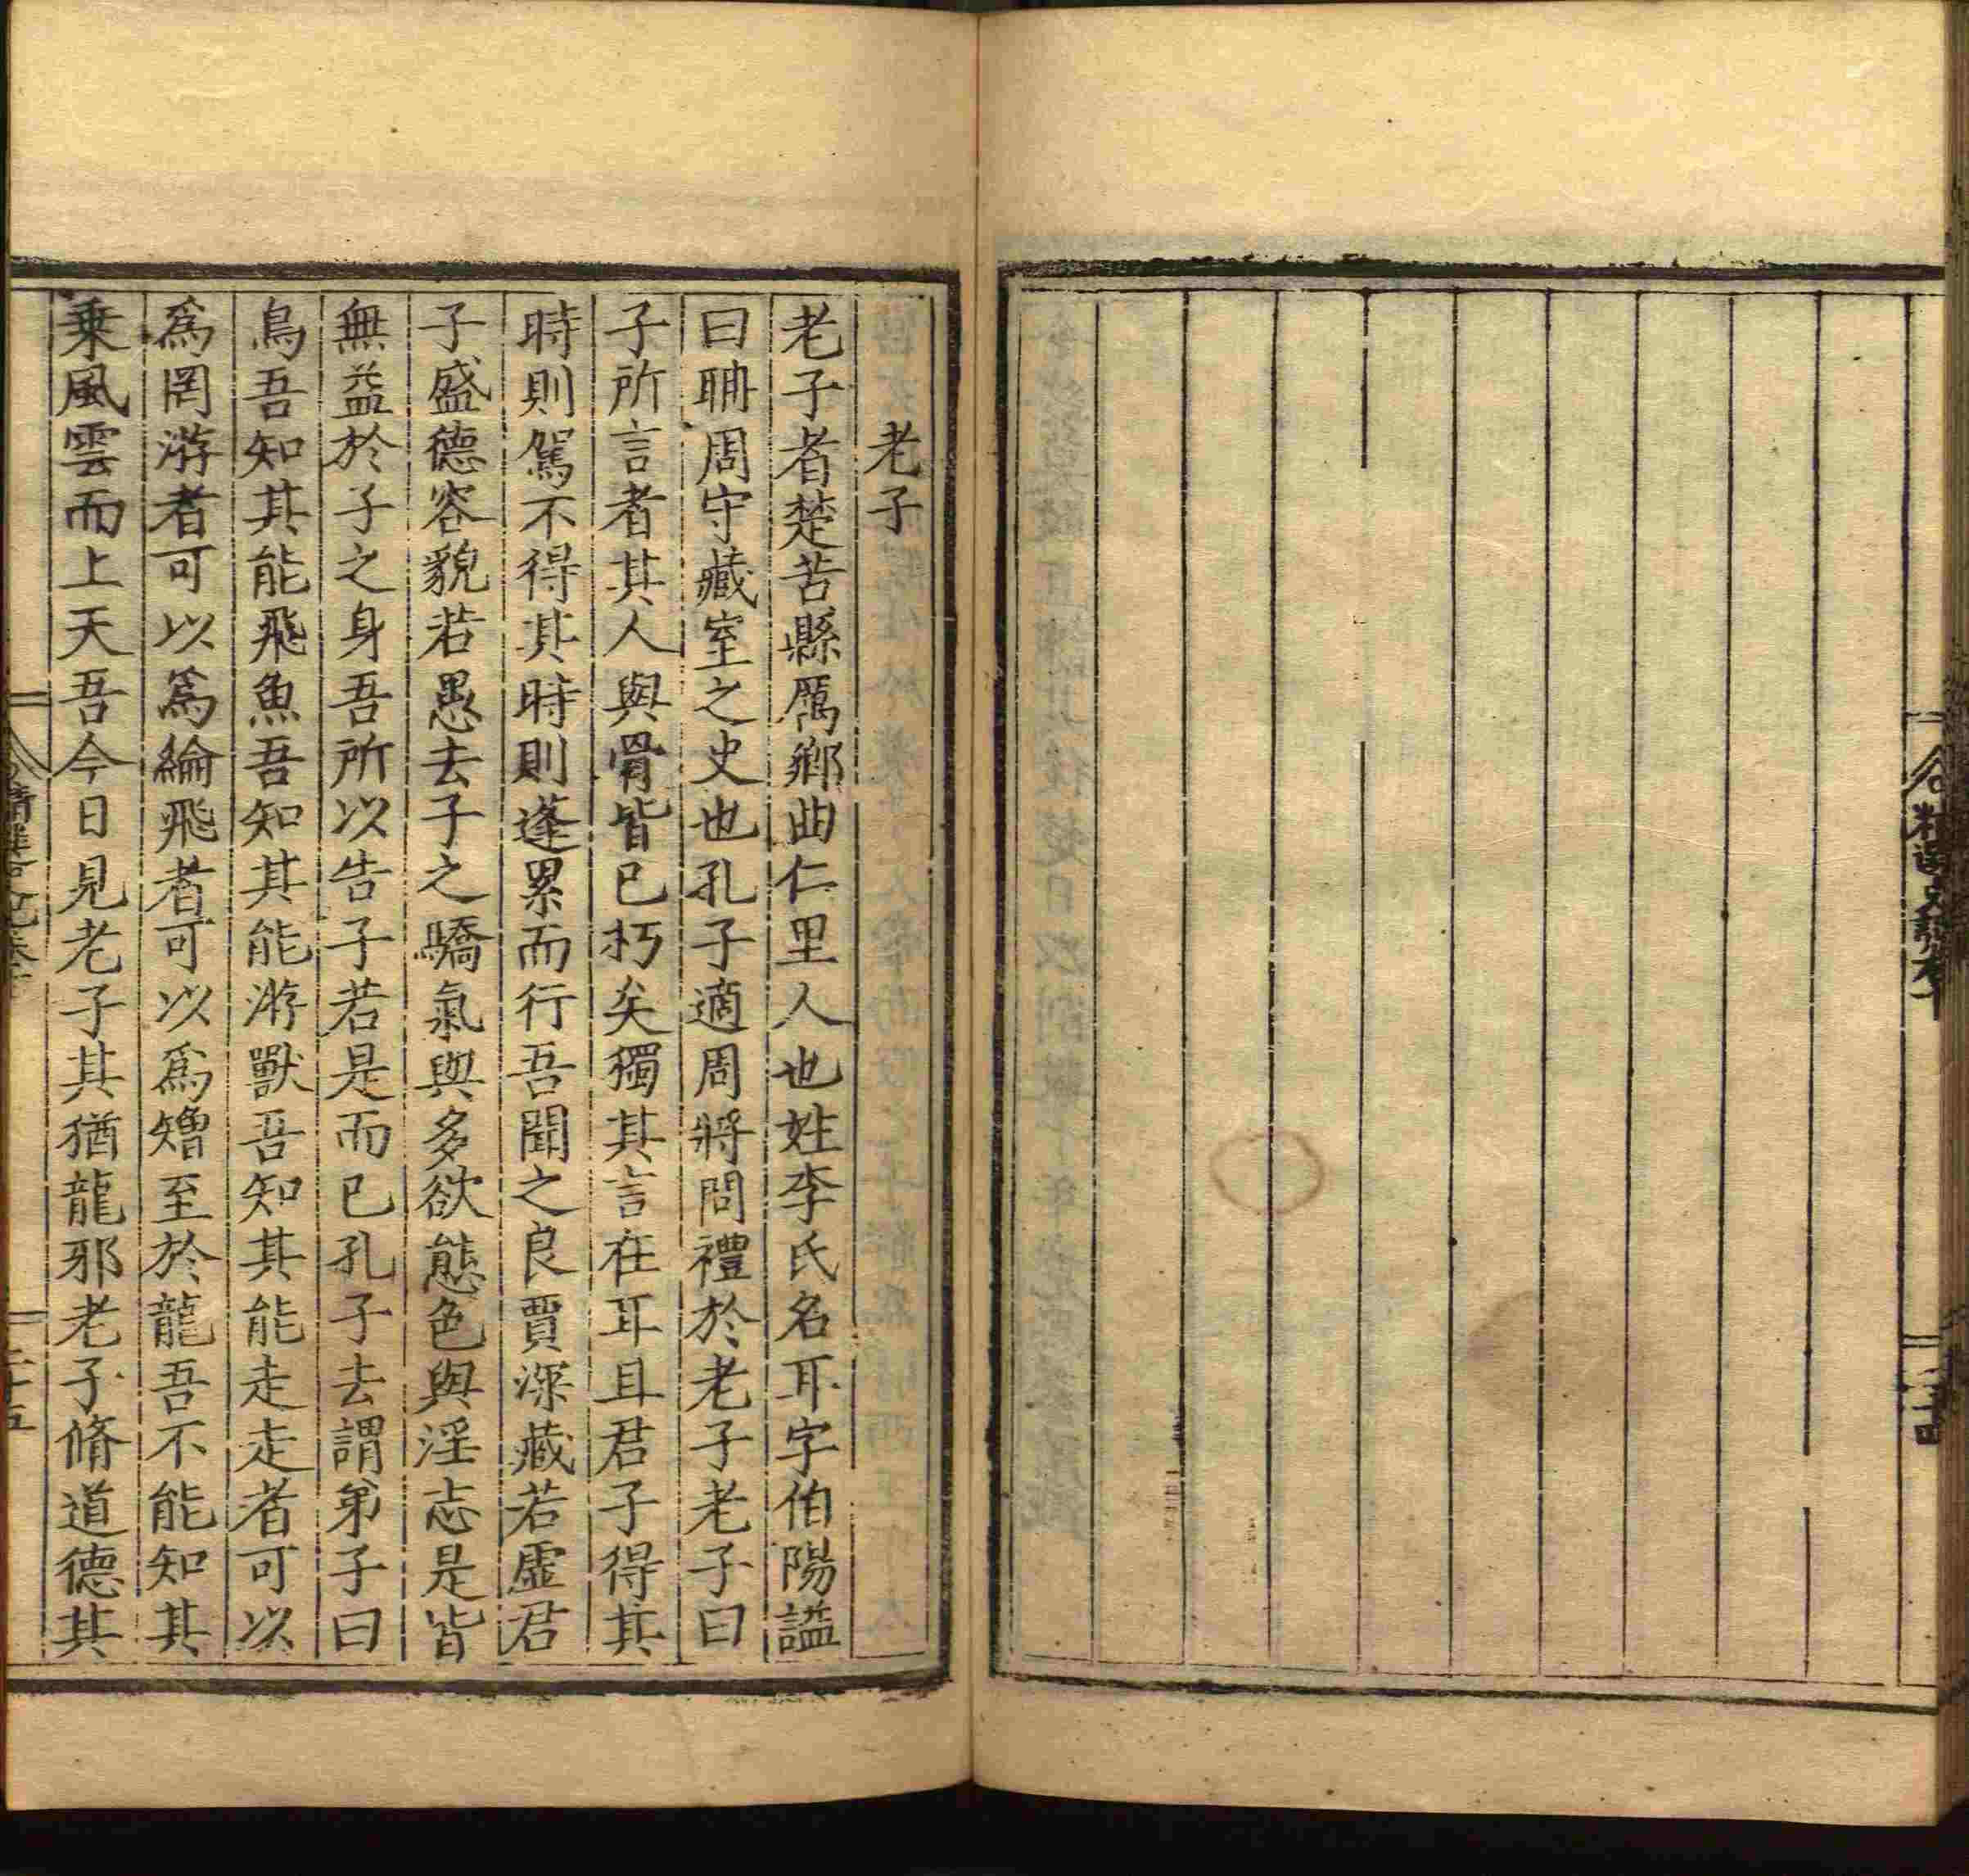 老子
老子者楚苦縣厲鄉曲仁里人也姓李氏名耳字伯陽謚
曰耼周守藏室之史也孔子適周將問禮於老子老子曰
子所言者其人與骨皆已朽矣獨其言在耳且君子得其
時則駕不得其時則蓬累而行吾聞之良賈深藏若虛君
子盛德容貌若愚去子之驕氣與多欲態色與淫志是皆
無益於子之身吾所以告子若是而已孔子去謂弟子曰
鳥吾知其能飛魚吾知其能游獸吾知其能走走者可以
爲罔游者可以爲綸飛者可以爲矰至於龍吾不能知其
乗風雲而上天吾今日見老子其猶龍邪老子脩道德其
二十五
二十四